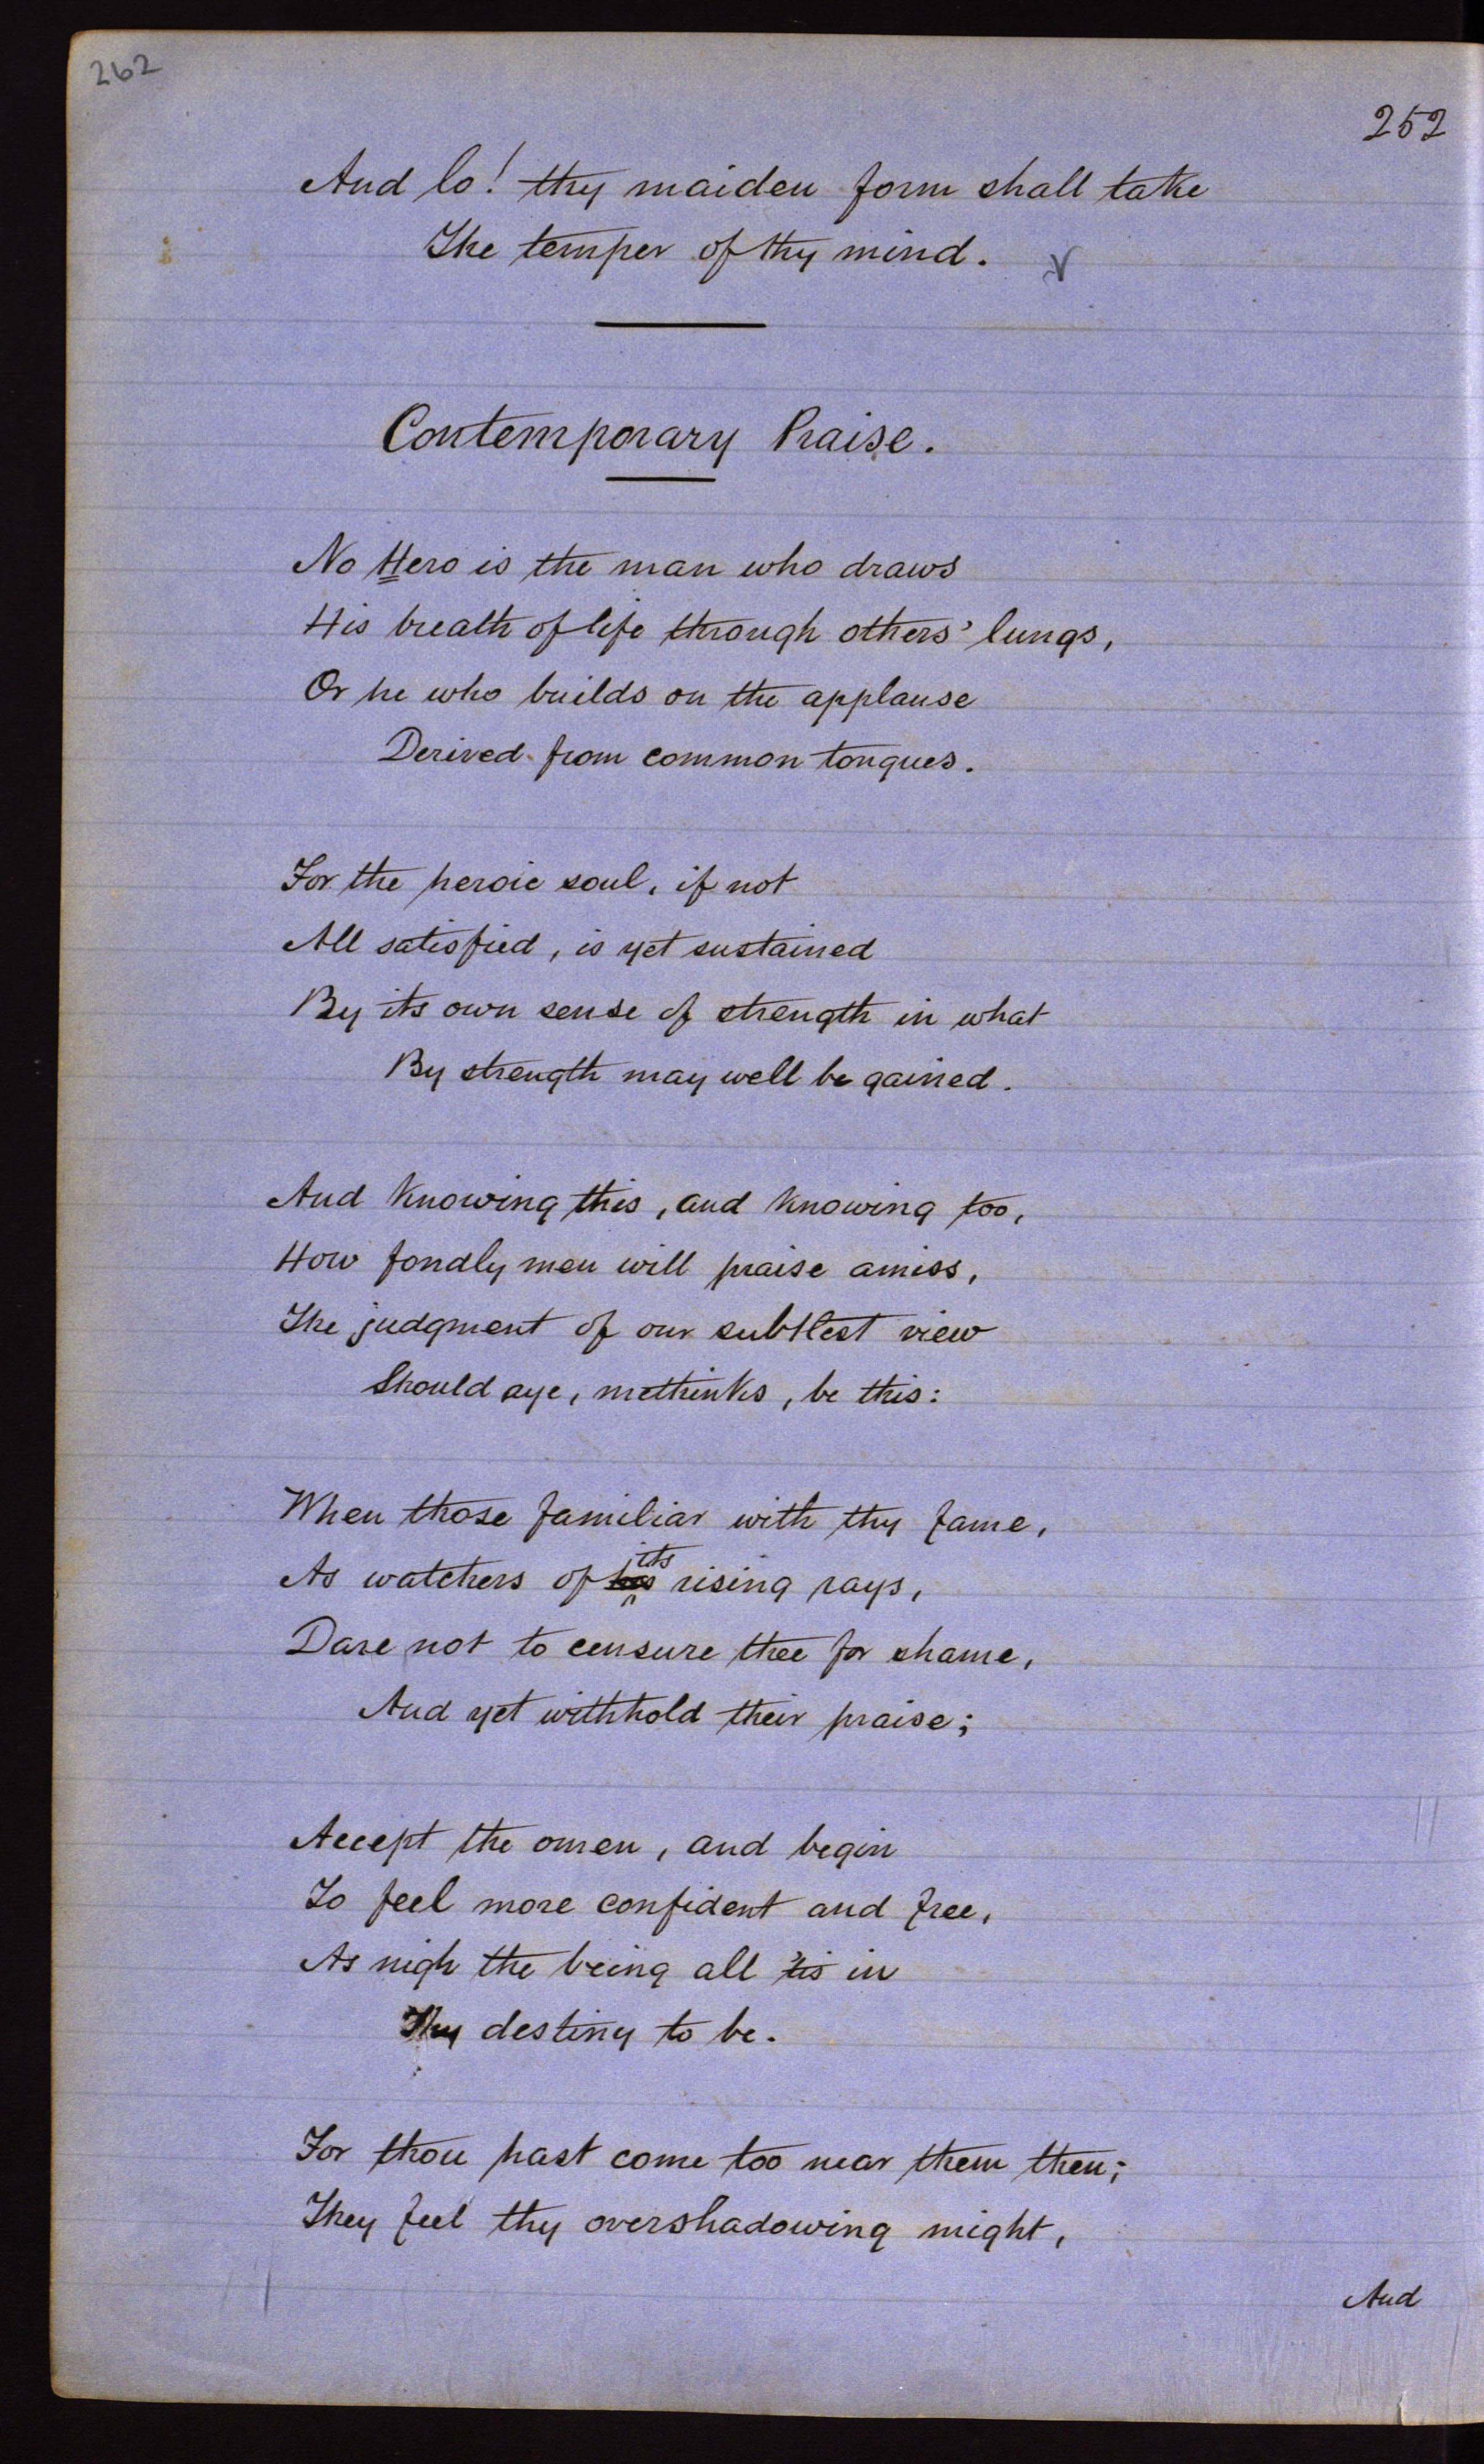 262
252
And lo! thy maiden form shall take
The temper of thy mind.
Contemporary Praise.
No Hero is the man who draws
His breath of life through others' lungs,
Or he who builds on the applause
Derived from common tongues.
For the heroic soul, if not
All satisfied, is yet sustained
By its own sense of strength in what
By strength may well be gained.
And knowing this, and knowing too,
How fondly men will praise amiss,
The judgment of our subtlest view
Should aye, methinks, be this:
When those familiar with thy fame,
As watchers of its rising rays,
Dare not to censure thee for shame,
And yet withhold their praise;
Accept the omen, and begin
To feel more confident and free,
As nigh the being all 'tis in
Thy destiny to be.
For thou hast come too near them then;
They feel thy overshadowing might,
And